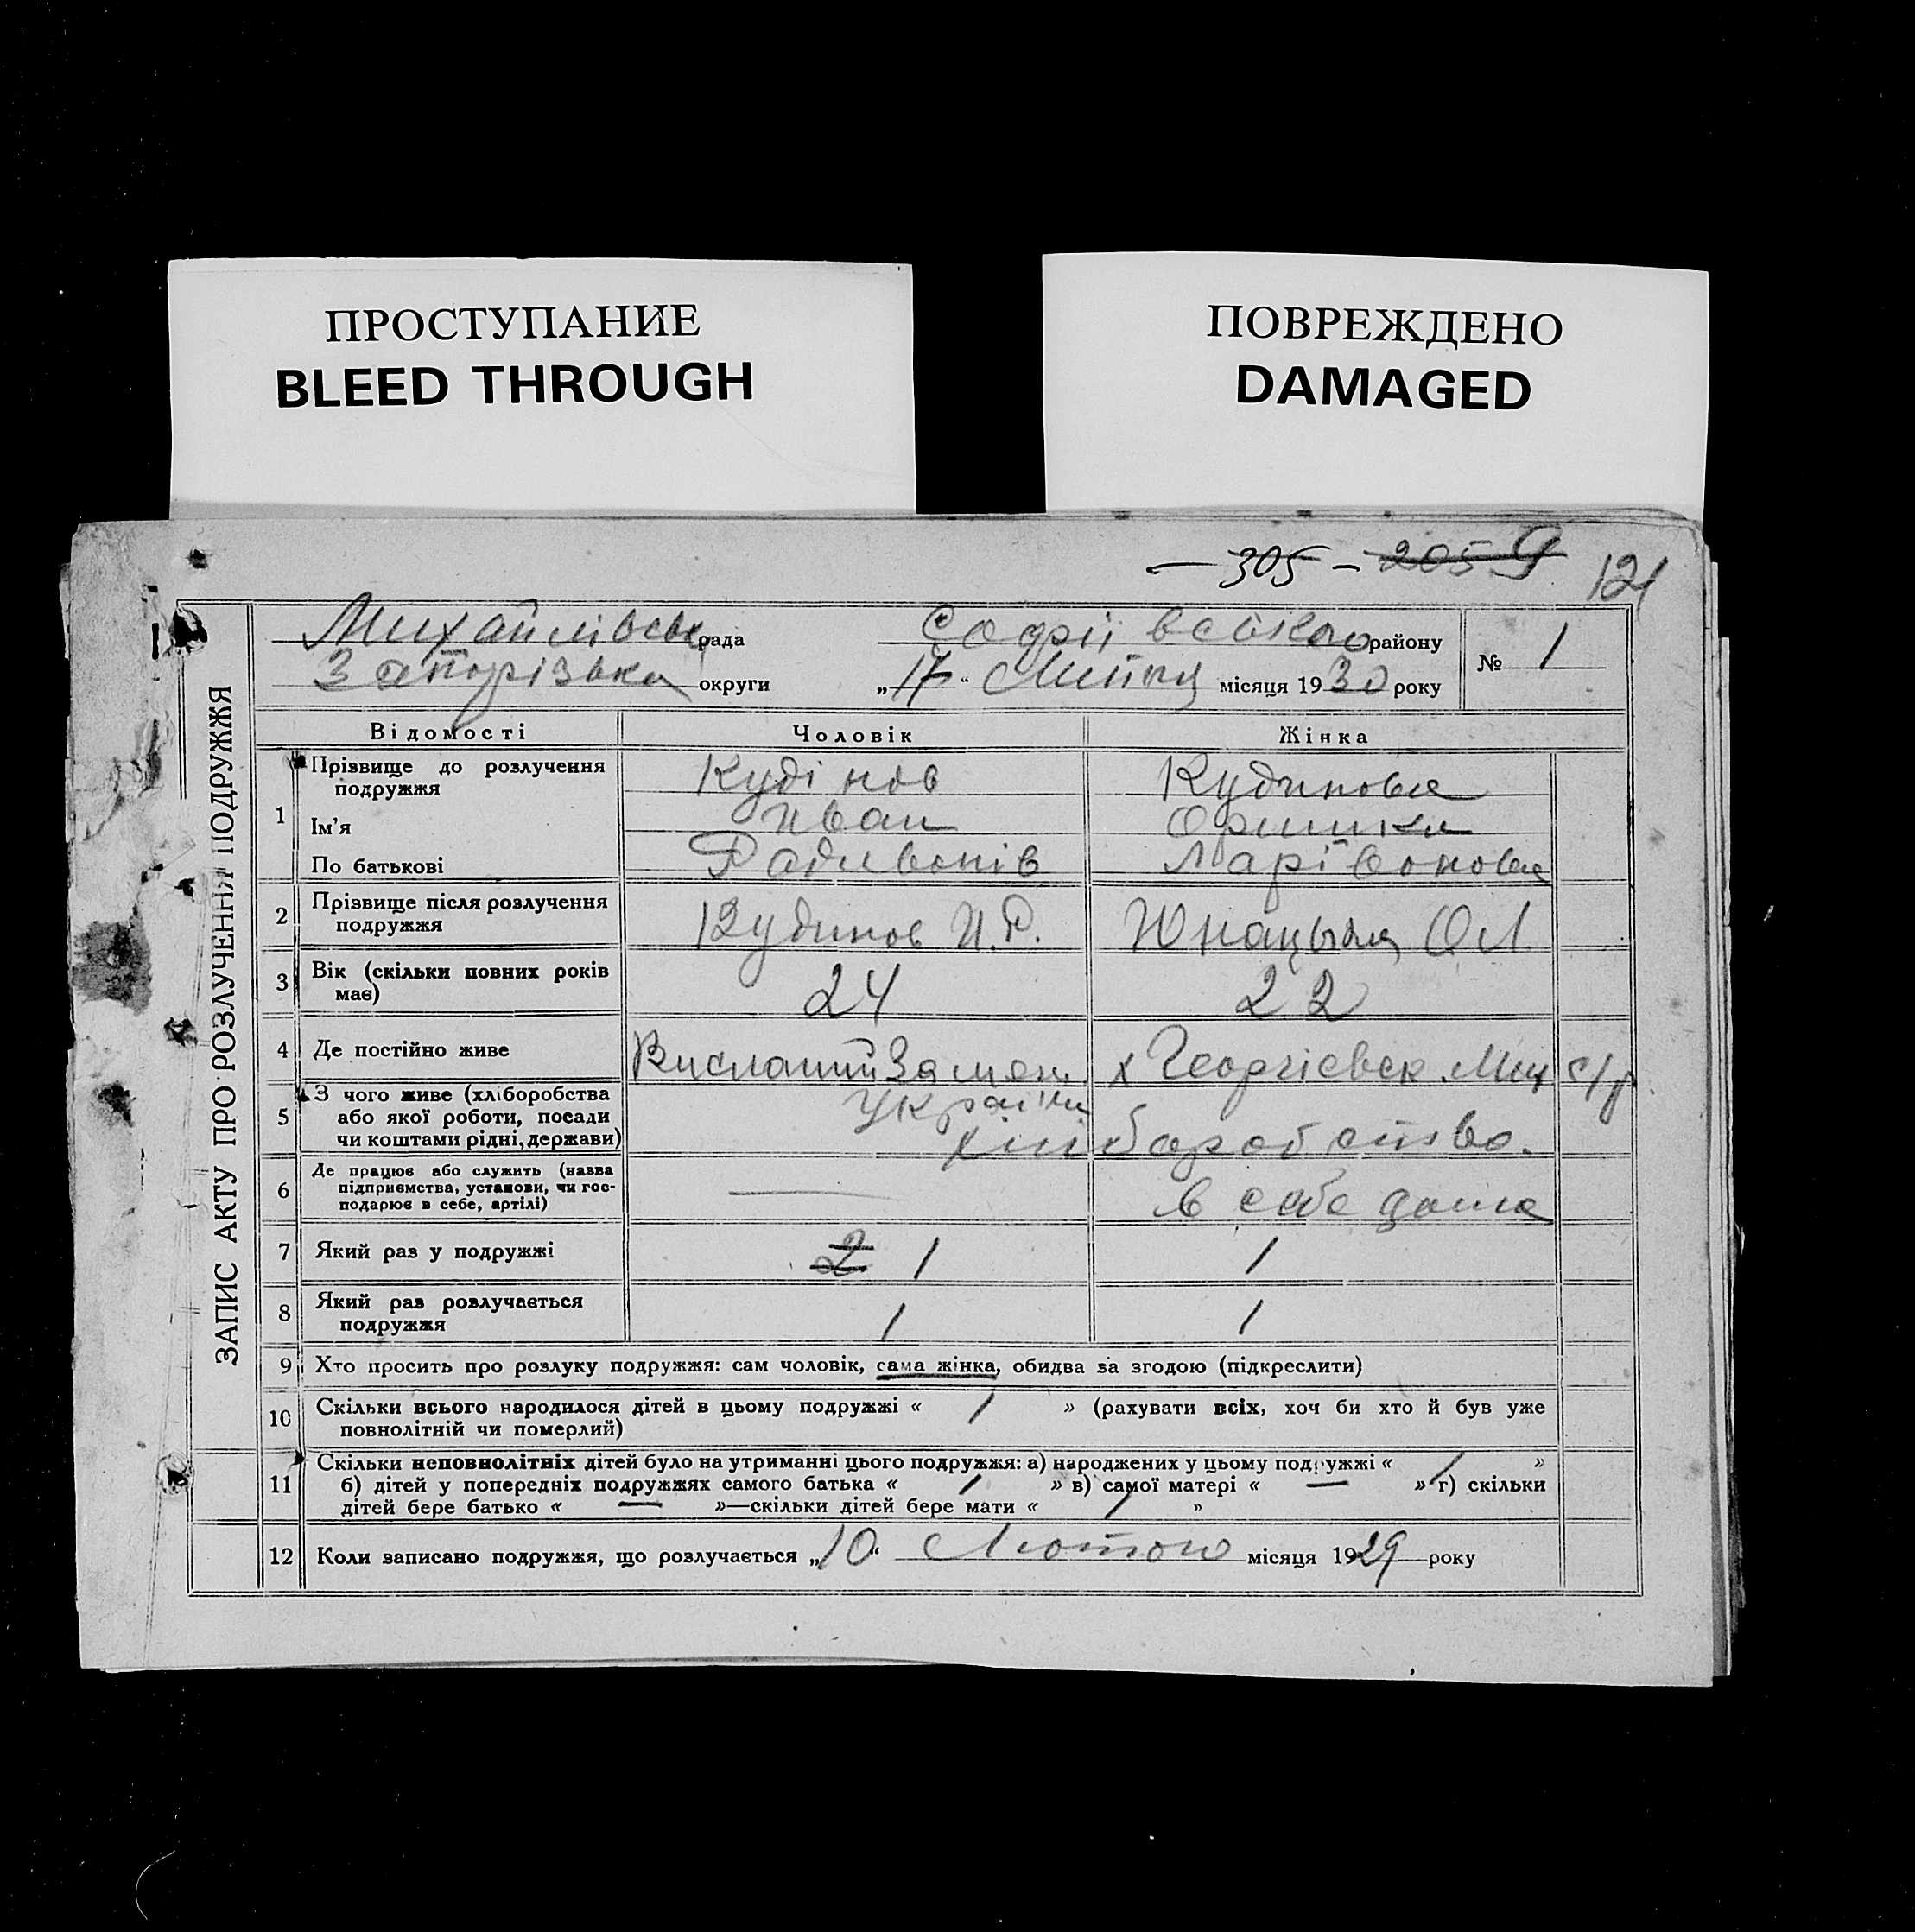 ПРОСТУПАНИЕ
BLEED THROUGH
ПОВРЕЖДЕНО
DAMAGED
— 305 – 205 9 121
ЗАПИС АКТУ ПРО РОЗЛУЧЕННЯ ПОДРУЖЖЯ
Михайлівськ рада Софіївського району
Запорізька округи „17“ Липня місяця 1930 року
№ 1
Відомості Чоловік Жінка
1
Прізвище до розлучення подружжя Кудінов Кудинова
Ім'я Иван Оришка
По батькові Радивонів Ларівонова
2 Прізвище після розлучення
подружжя Кудинов И.Р. О Л
3 Вік (скільки повних років
має) 24 22
4 Де постійно живе Висланий За меж. х Георгіевск. Мих с/р.
України
5 З чого живе (хліборобства
або якої роботи, посади
чи коштами рідні, держави) хліборобство.
6 Де працює або служить (назва
підприємства, установи, чи гос-
подарює в себе, артілі) — в себе дома
7 Який раз у подружжі 2 1 1
8 Який раз розлучається
подружжя 1 1
9 Хто просить про розлуку подружжя: сам чоловік, сама жінка, обидва за згодою (підкреслити)
10 Скільки всього народилося дітей в цьому подружжі « 1 » (рахувати всіх, хоч би хто й був уже
повнолітній чи померлий)
11 Скільки неповнолітніх дітей було на утриманні цього подружжя: а) народжених у цьому подружжі « 1 »
б) дітей у попередніх подружжях самого батька « 1 » в) самої матері « — » г) скільки
дітей бере батько « — »—скільки дітей бере мати « 1 »
12 Коли записано подружжя, що розлучається „10“ Лютого місяця 1929 року